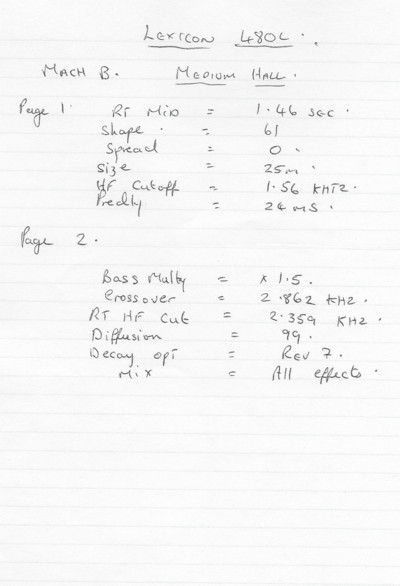 LEXICON 480L.
MACH B. MEDIUM HALL.
Page 1. RT MID = 1.46 SEC.
Shape. = 61
Spread = 0.
Size = 25m.
HF Cutoff = 1.56 KHTZ.
Predly = 24 mS.
Page 2.
Bass Multy = x 1.5.
Crossover = 2.862 KHZ.
RT HF Cut = 2.359 KHZ.
Diffusion = 99.
Decay OPT = REV 7.
MIX = All effects.